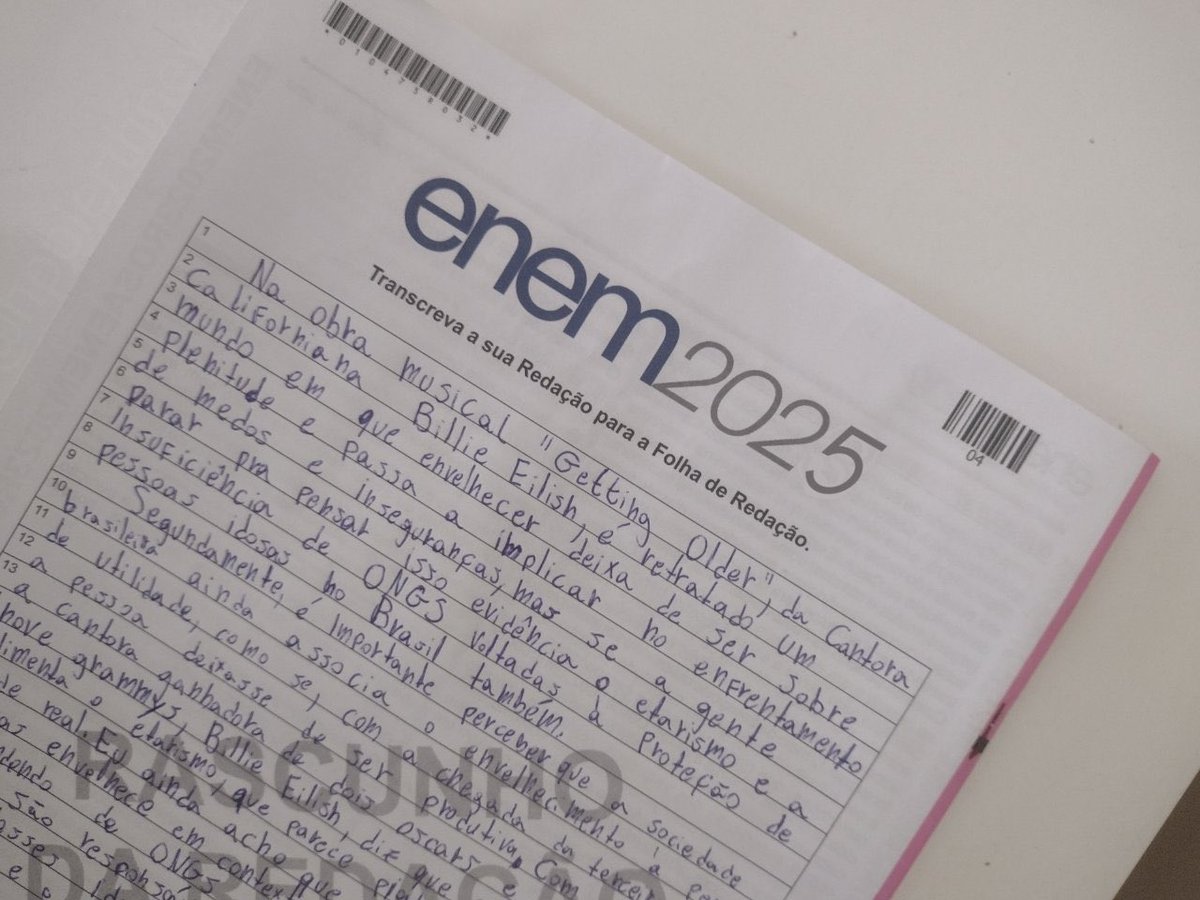 *010475032*
enem2025
Transcreva a sua Redação para a Folha de Redação.
04
1 Na obra musical "Getting Older", da Cantora
2 Californiana Billie Eilish, é retratado um
3 mundo em que envelhecer deixa de ser sobre
4 plenitude e passa a implicar no enfrentamento
5 de medos e inseguranças, mas se a gente
6 parar pra pensar isso evidência o etarismo e a
7 Insuficiência de ONGS voltadas à proteção de
8 pessoas idosas no Brasil também.
9 Segundamente, é importante perceber que a sociedade
10 brasileira ainda associa o envelhecimento à
11 de utilidade, como se, com a chegada da
12 a pessoa deixasse de ser produtiva. Com
13 a cantora ganhadora de dois oscars e
nove grammys, Billie Eilish, diz que
o etarismo, que parece
real. Eu ainda acho que
envelhece em
de ONGS
São
RASCUNHO
DA REDAÇÃO